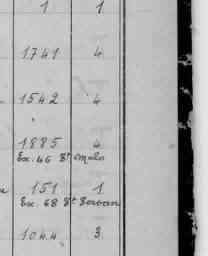 1 1
1741 4
1542 4
1885 4
Ex. 46 St Malo
151 1
Ex. 68 St Servan
1044 3